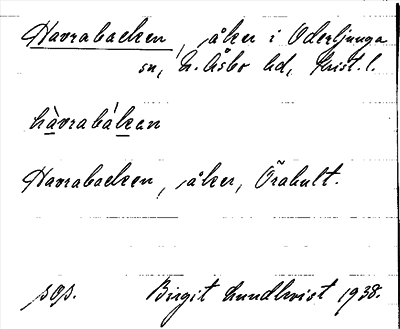 Havrabacken, åker i Oderljunga
sn, N. Åsbo hd, Krist. l.
hàvrabákan
Havrabacken, åker, Örahult.
sop.  Birgit Lundkvist 1938.